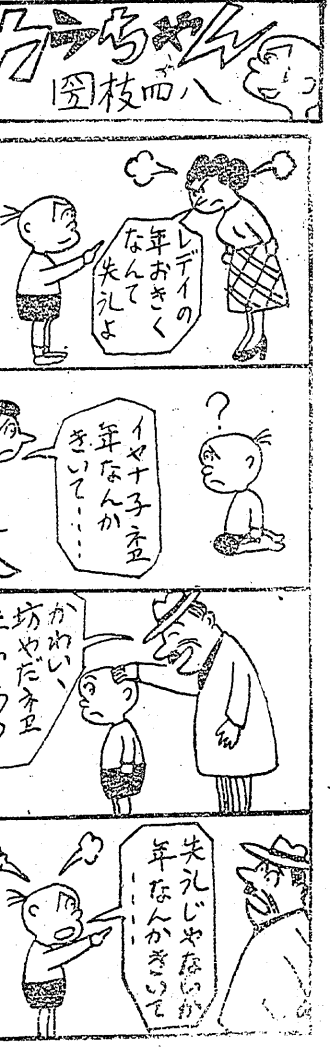 かっちゃん
岡枝四八
レディの
年おきく
なんて
失礼よ
?
イヤナ子ネエ
年なんか
きいて……
かわいゝ
坊やだネエ
失礼じゃないか
年なんかきいて
……